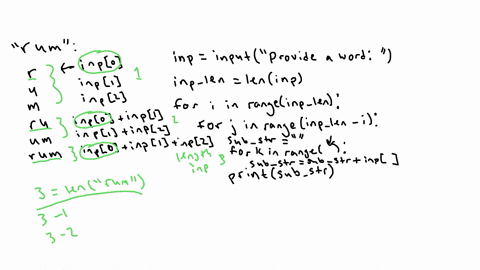 "rum":
r ← inp[0]
u inp[1] 1
m inp[2]
ru } inp[0]+inp[1] 2
um } inp[1]+inp[2]
rum } inp[0]+inp[1]+inp[2] 3
length
inp
3 = len("rum")
3-1
3-2
inp = input("Provide a word: ")
inp_len = len(inp)
for i in range(inp_len):
for j in range(inp_len-i):
sub_str = ""
for k in range( ):
sub_str = sub_str + inp[ ]
print(sub_str)